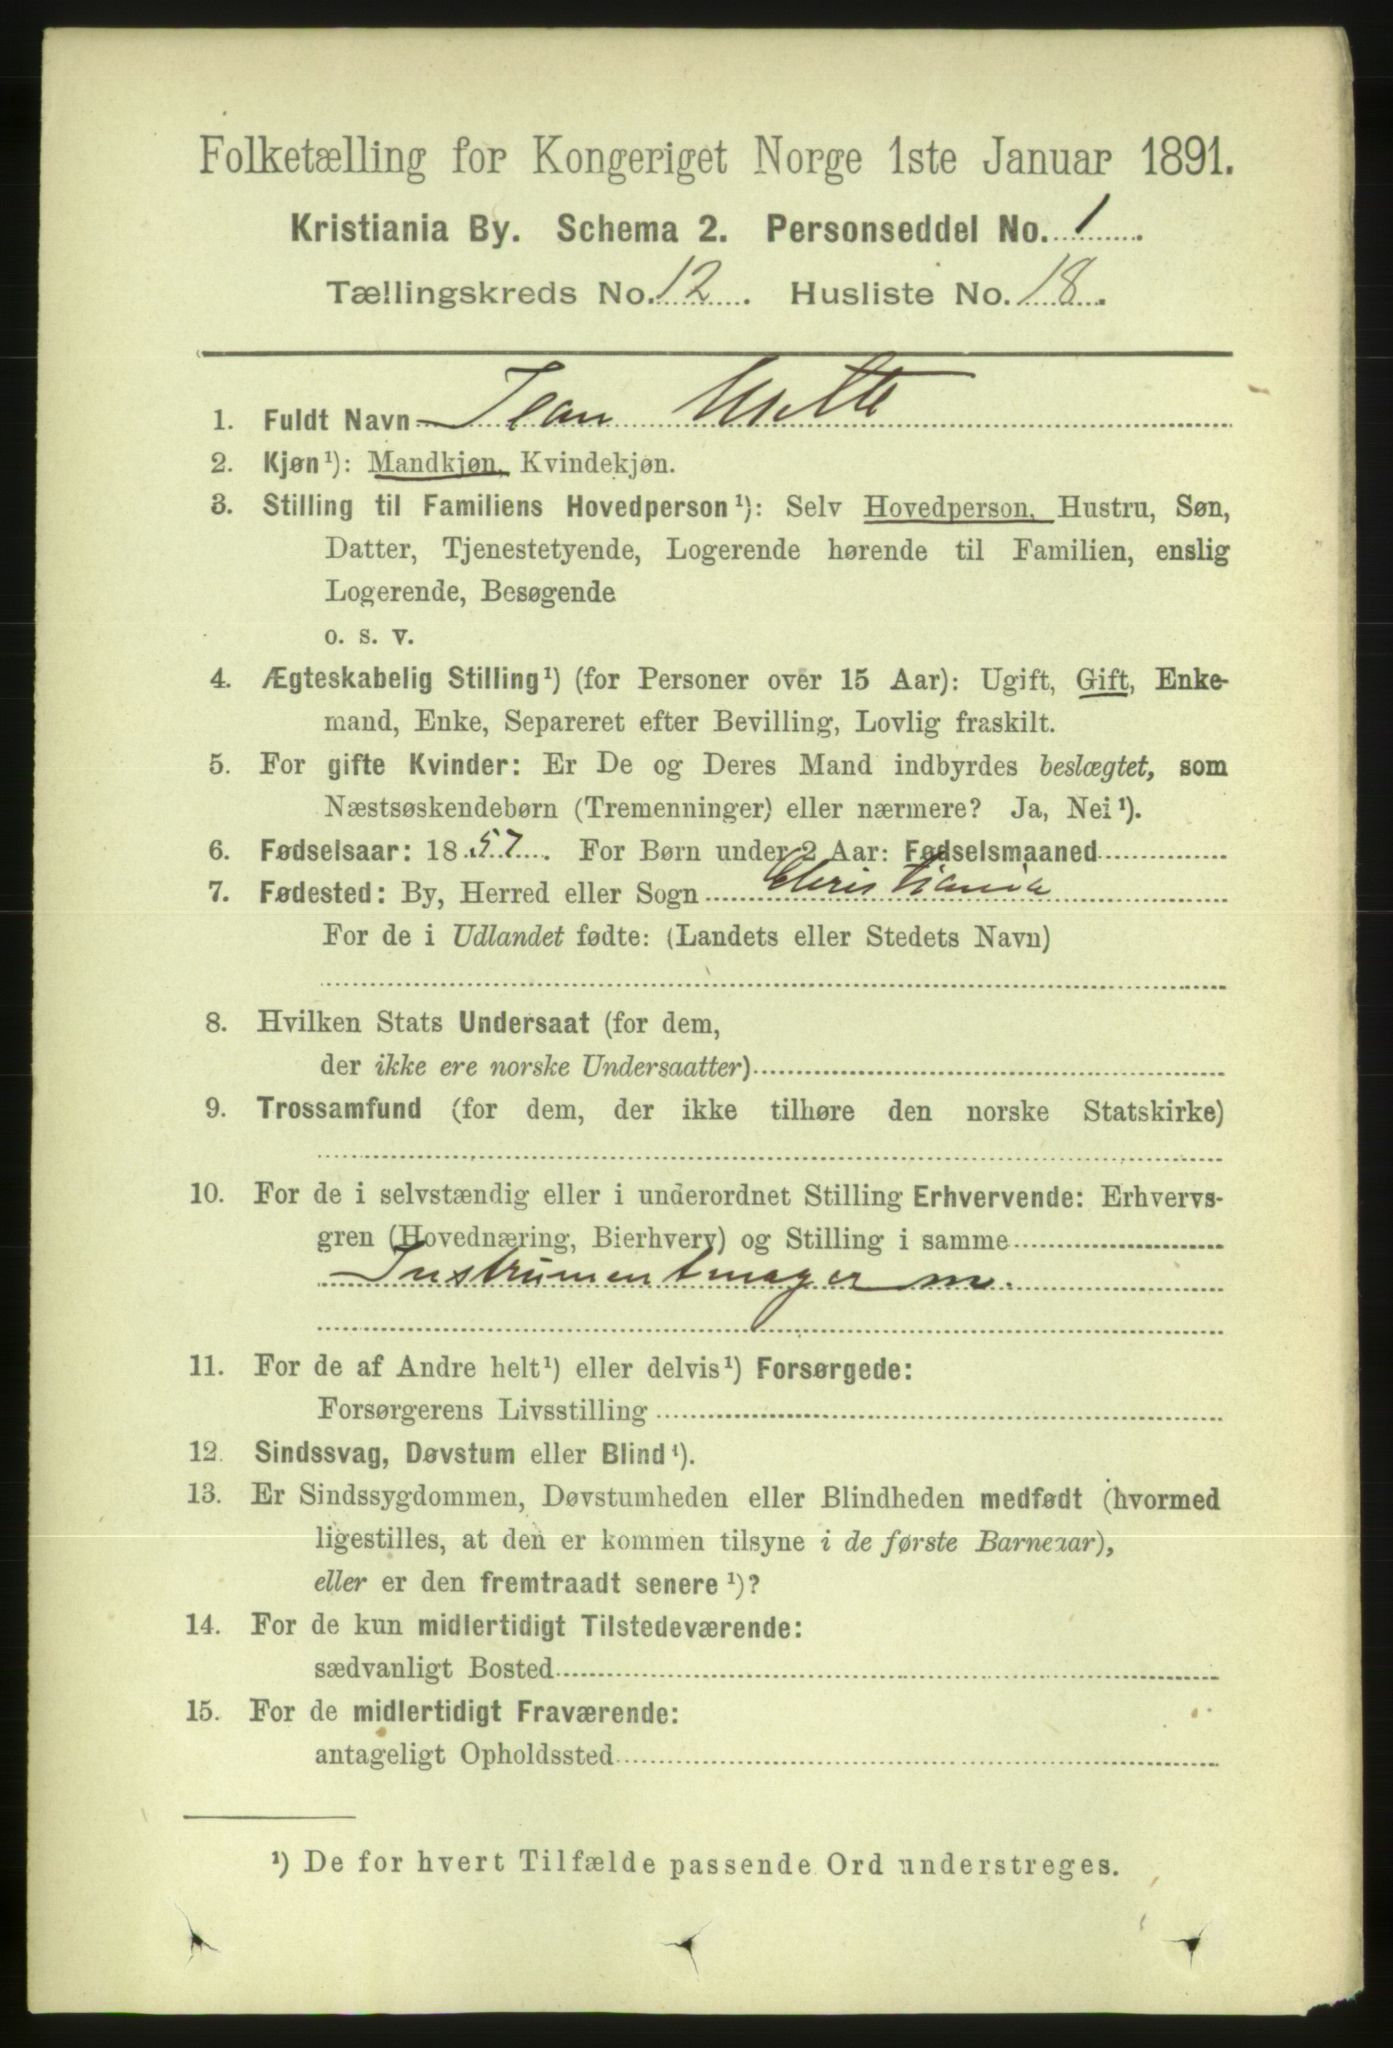 Folketælling for Kongeriget Norge 1ste Januar 1891.
Kristiania By. Schema 2. Personseddel No. 1.
Tællingskreds No. 12. Husliste No. 18.
1. Fuldt Navn Jean
2. Kjøn¹): Mandkjøn, Kvindekjøn.
3. Stilling til Familiens Hovedperson¹): Selv Hovedperson, Hustru, Søn,
Datter, Tjenestetyende, Logerende hørende til Familien, enslig
Logerende, Besøgende
o. s. v.
4. Ægteskabelig Stilling¹) (for Personer over 15 Aar): Ugift, Gift, Enke-
mand, Enke, Separeret efter Bevilling, Lovlig fraskilt.
5. For gifte Kvinder: Er De og Deres Mand indbyrdes beslægtet, som
Næstsøskendebørn (Tremenninger) eller nærmere? Ja, Nei¹).
6. Fødselsaar: 1857. For Børn under 2 Aar: Fødselsmaaned
7. Fødested: By, Herred eller Sogn Christiania
For de i Udlandet fødte: (Landets eller Stedets Navn)
8. Hvilken Stats Undersaat (for dem,
der ikke ere norske Undersaatter)
9. Trossamfund (for dem, der ikke tilhøre den norske Statskirke)
10. For de i selvstændig eller i underordnet Stilling Erhvervende: Erhvervs-
gren (Hovednæring, Bierhverv) og Stilling i samme
Instrumentmager m.
11. For de af Andre helt¹) eller delvis¹) Forsørgede:
Forsørgerens Livsstilling
12. Sindssvag, Døvstum eller Blind¹).
13. Er Sindssygdommen, Døvstumheden eller Blindheden medfødt (hvormed
ligestilles, at den er kommen tilsyne i de første Barneaar),
eller er den fremtraadt senere¹)?
14. For de kun midlertidigt Tilstedeværende:
sædvanligt Bosted
15. For de midlertidigt Fraværende:
antageligt Opholdssted
¹) De for hvert Tilfælde passende Ord understreges.